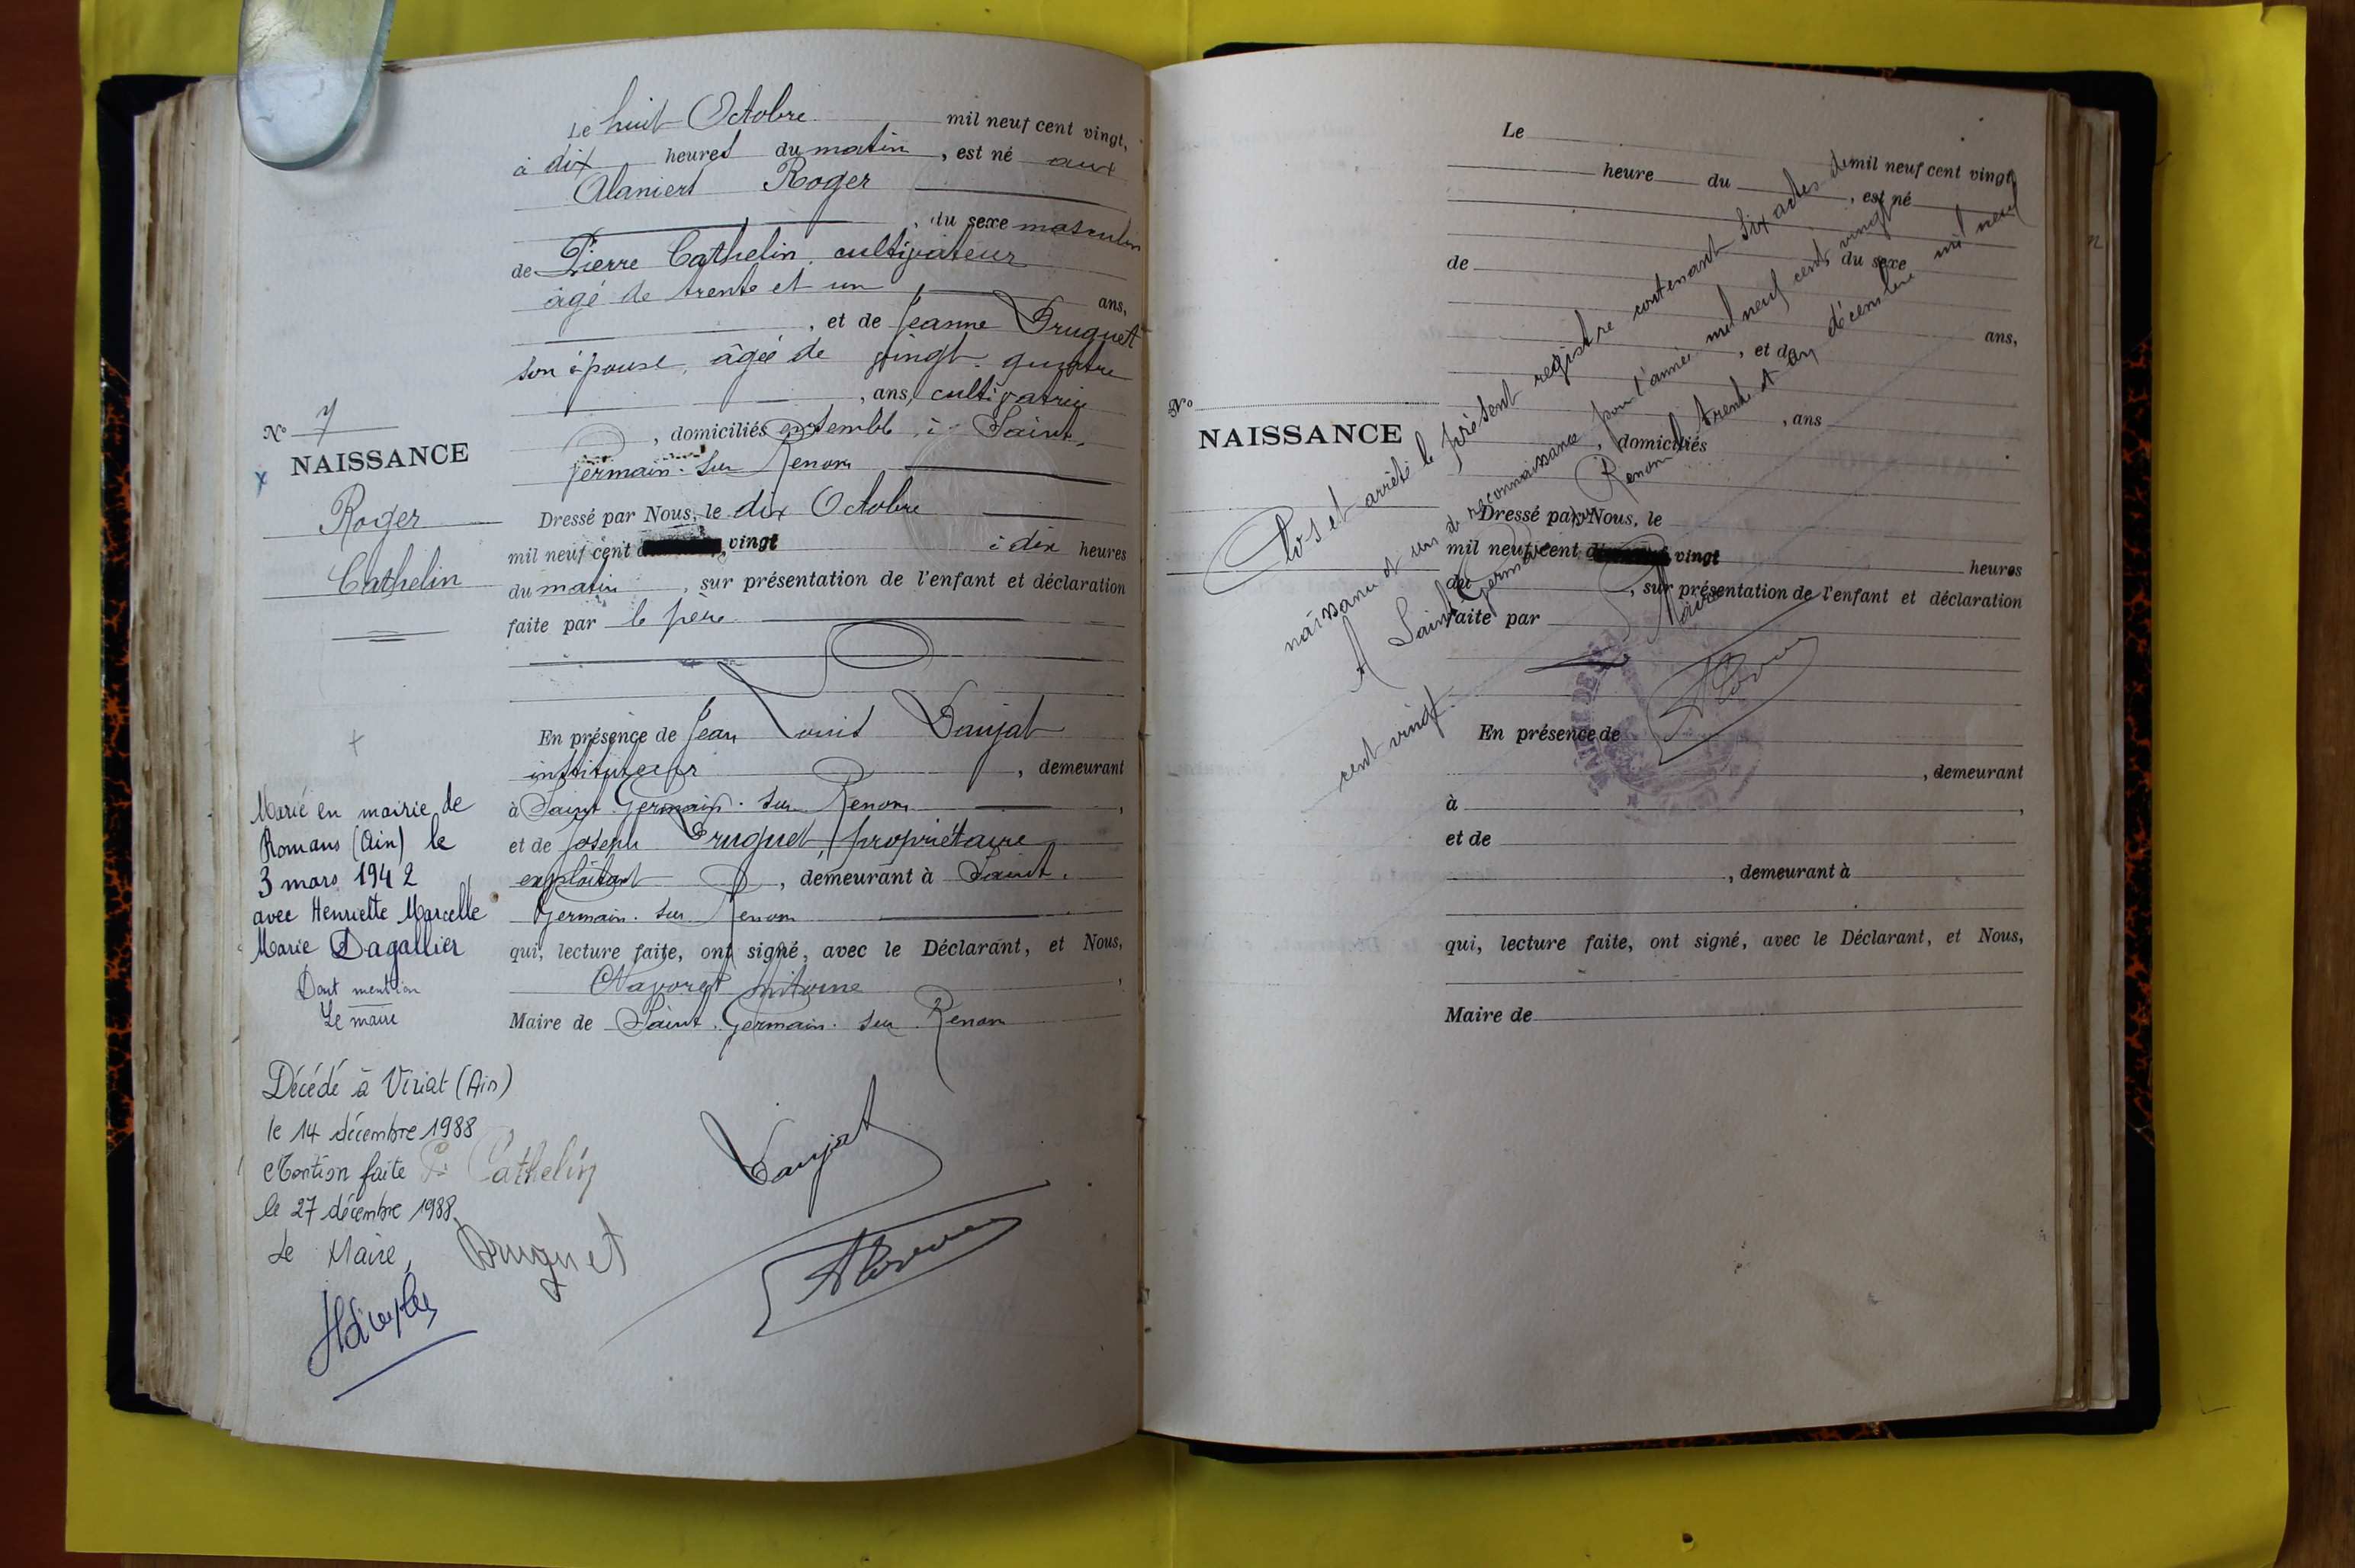 Le huit Octobre mil neuf cent vingt,
à dix heures du matin, est né aux
Alaniers Roger
, du sexe masculin
de Pierre Cathelin, cultivateur
âgé de trente et un ans,
, et de Jeanne Druguet
son épouse, âgée de vingt-quatre
, ans, cultivatrice
, domiciliés ensemble à Saint-
Germain-sur Renom
N° 7
NAISSANCE
Roger
Cathelin
Dressé par Nous, le dix Octobre
mil neuf cent vingt à dix heures
du matin, sur présentation de l'enfant et déclaration
faite par le père
En présence de Jean Louis Daujat
instituteur, demeurant
à Saint-Germain-sur Renom,
et de Joseph Druguet, propriétaire
exploitant, demeurant à Saint-
Germain-sur Renom
qui, lecture faite, ont signé, avec le Déclarant, et Nous,
Antoine,
Maire de Saint-Germain-sur Renom
Marié en mairie de
Romans (Ain) le
3 mars 1942
avec Henriette Marcelle
Marie Dagallier
Dont mention
Le maire
Décédé à Viriat (Ain)
le 14 décembre 1988
Mention faite
le 27 décembre 1988
Le Maire,
P. Cathelin
Druguet
Daujat
Le mil neuf cent vingt
heure du, est né
du sexe
de
ans,
, et de
, ans
, domiciliés
N°
NAISSANCE
Dressé par Nous, le
mil neuf cent vingt heures
du, sur présentation de l'enfant et déclaration
faite par
En présence de
, demeurant
à,
et de
, demeurant à
qui, lecture faite, ont signé, avec le Déclarant, et Nous,
Maire de
Clos et arrêté le présent registre contenant six actes de
naissance et un de reconnaissance pour l'année mil neuf cent vingt
A Saint Germain sur Renom le trente et un décembre mil neuf
cent vingt.
Le Maire
MAIRIE DE